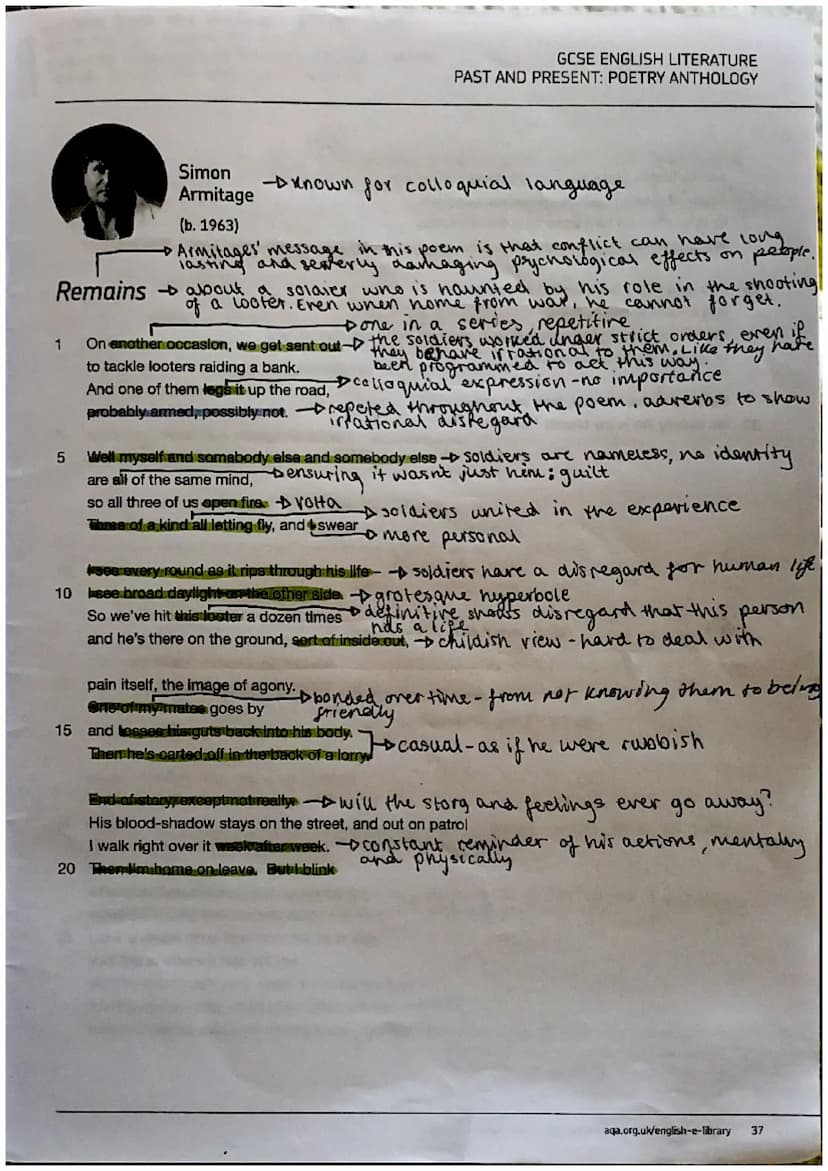 GCSE ENGLISH LITERATURE
PAST AND PRESENT: POETRY ANTHOLOGY
Simon
Armitage
(b. 1963)
→ known for colloquial language
→ Armitages' message in this poem is that conflict can have long
lasting and severly damaging psychological effects on people.
Remains → about a soldier who is haunted by his role in the shooting
of a looter. Even when home from war, he cannot forget.
→ one in a series, repetitive
1 On another occasion, we get sent out → the soldiers worked under strict orders, even if
they behave irrational to them. Like they have
been programmed to act this way.
to tackle looters raiding a bank.
And one of them legs it up the road, → colloquial expression - no importance
probably armed, possibly not. → repeted throughout the poem. adverbs to show
irrational disregard
5 Well myself and somebody else and somebody else → soldiers are nameless, no identity
are all of the same mind, → ensuring it wasn't just him; guilt
so all three of us open fire. → volta
→ soldiers united in the experience
Three of a kind all letting fly, and I swear
→ more personal
I see every round as it rips through his life – → soldiers have a disregard for human life
10 I see broad daylight on the other side. → grotesque hyperbole
So we've hit this looter a dozen times → definitive shows disregard that this person
has a life
and he's there on the ground, sort of inside out, → childish view - hard to deal with
pain itself, the image of agony.
One of my mates goes by → bonded over time - from not knowing them to being
friendly
15 and tosses his guts back into his body.
Then he's carted off in the back of a lorry. → casual - as if he were rubbish
End of story, except not really. → will the story and feelings ever go away?
His blood-shadow stays on the street, and out on patrol
I walk right over it week after week. → constant reminder of his actions, mentally
and physically
20 Then I'm home on leave. But I blink
aqa.org.uk/english-e-library 37